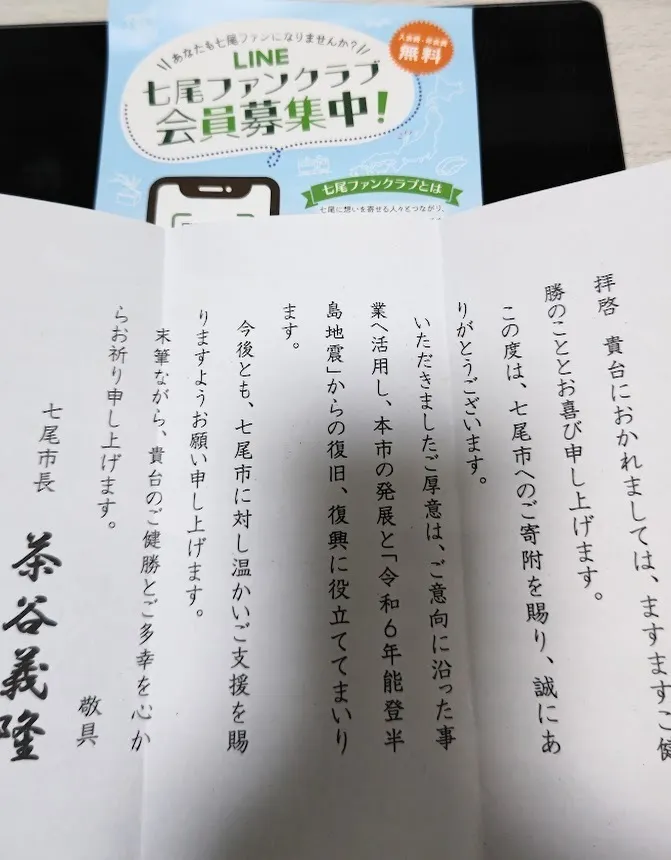 あなたも七尾ファンになりませんか？
LINE
七尾ファンクラブ
会員募集中！
入会費、年会費
無料
七尾ファンクラブとは
七尾に想いを寄せる人々とつながり、
拝啓　貴台におかれましては、ますますご健
勝のこととお喜び申し上げます。
この度は、七尾市へのご寄附を賜り、誠にあ
りがとうございます。
いただきましたご厚意は、ご意向に沿った事
業へ活用し、本市の発展と「令和６年能登半
島地震」からの復旧、復興に役立ててまいり
ます。
今後とも、七尾市に対し温かいご支援を賜
りますようお願い申し上げます。
末筆ながら、貴台のご健勝とご多幸を心か
らお祈り申し上げます。
敬具
七尾市長　茶谷義隆